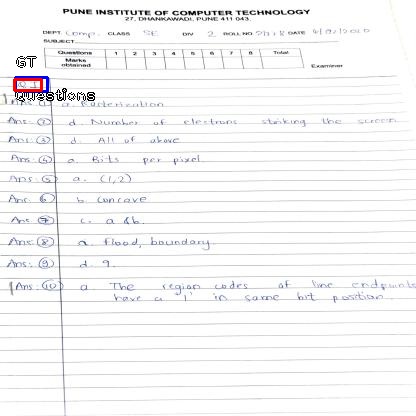 PUNE INSTITUTE OF COMPUTER TECHNOLOGY
27, DHANKAWADI, PUNE 411 043.
DEPT. Comp. CLASS SE DIV 2 ROLL NO.
SUBJECT
Questions 1 2 3 4 5 6 7 8 Total
Marks obtained
Examiner
GT
Q.1
Questions
Ans: ① a. Rasterization
Ans: ② d. Number of electrons striking the screen
Ans: ③ d. All of above
Ans: ④ a. Bits per pixel
Ans: ⑤ a. (1,2)
Ans: ⑥ b. concave
Ans: ⑦ c. a & b.
Ans: ⑧ a. flood, boundary.
Ans: ⑨ d. 9.
Ans: ⑩ a The region codes of line endpoints
have a '1' in same bit position.